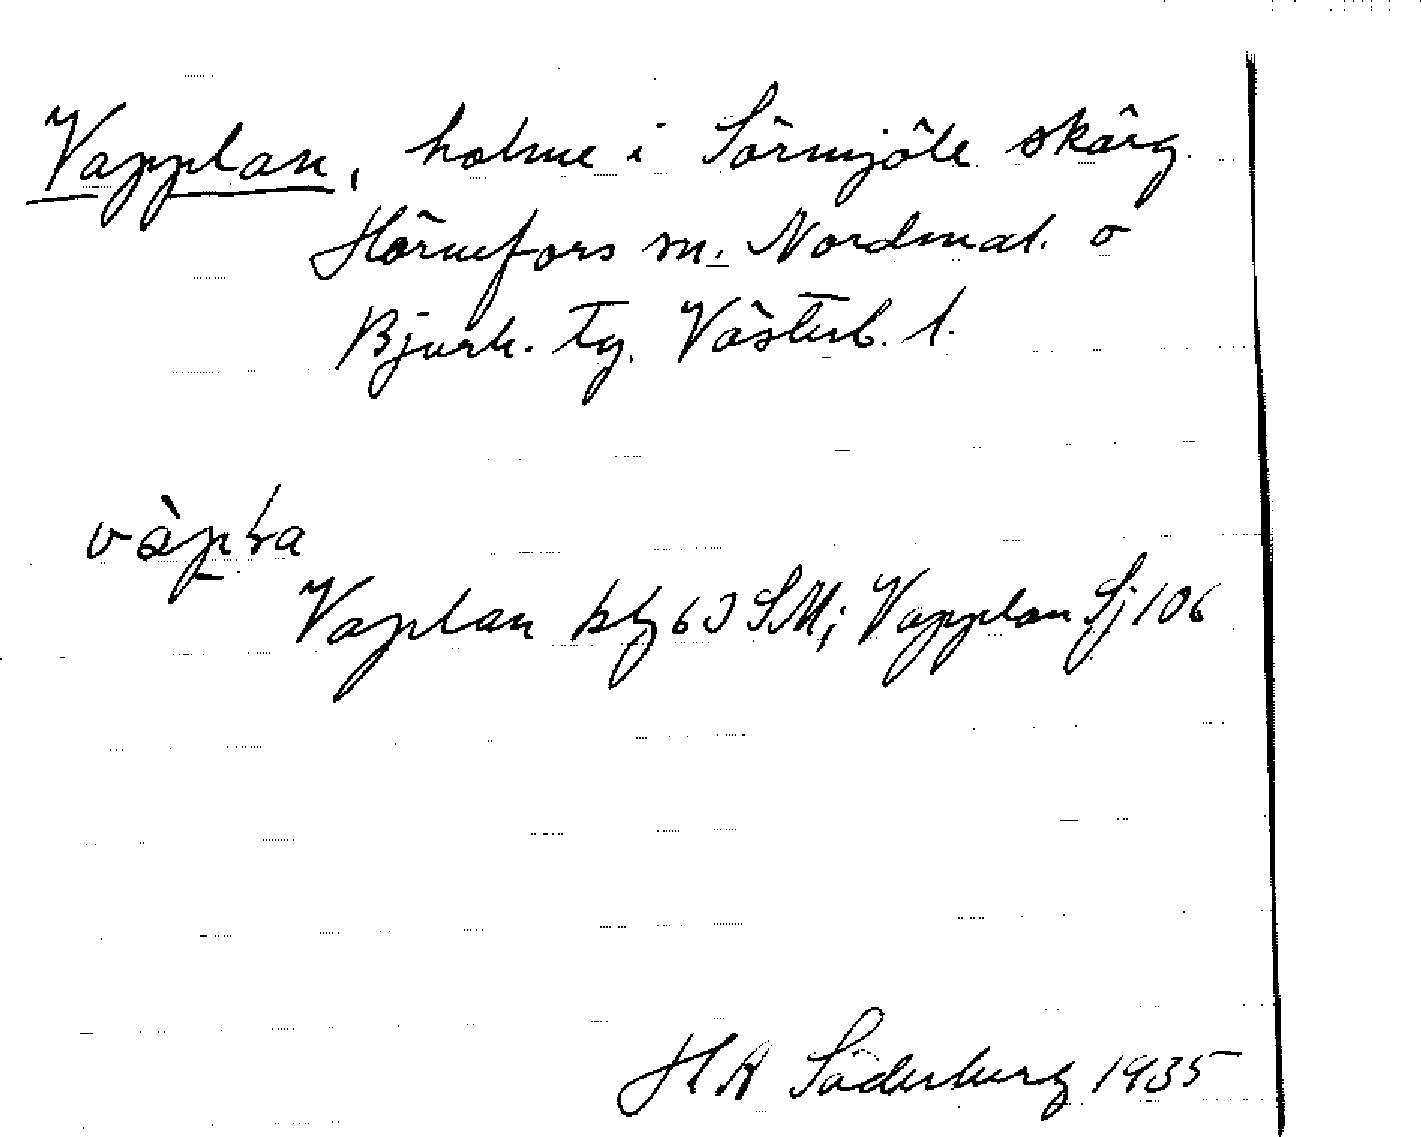 Vapplan, holme i Sörmjöle skärg.
Hörnefors sn. Nordmal. o
Bjurh. tg. Västerb. l.
Vaplan 63 SM; Vapplan Sj 106
HA Söderberg 1935